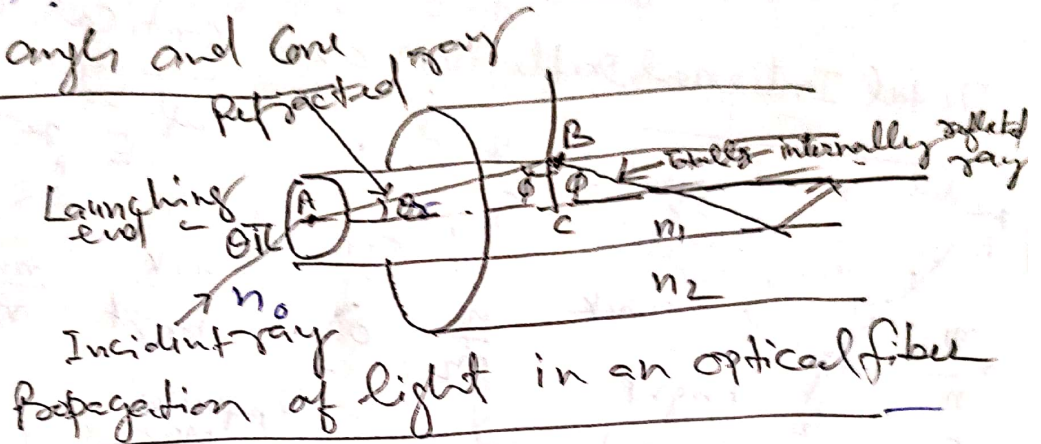 angls and Cone
Refracted ray
B
Totally internally reflected
ray
Launching
end
A
θr
ϕ ϕ
C
θi
n₁
n₀
n₂
Incidint ray
Propagation of light in an optical fiber